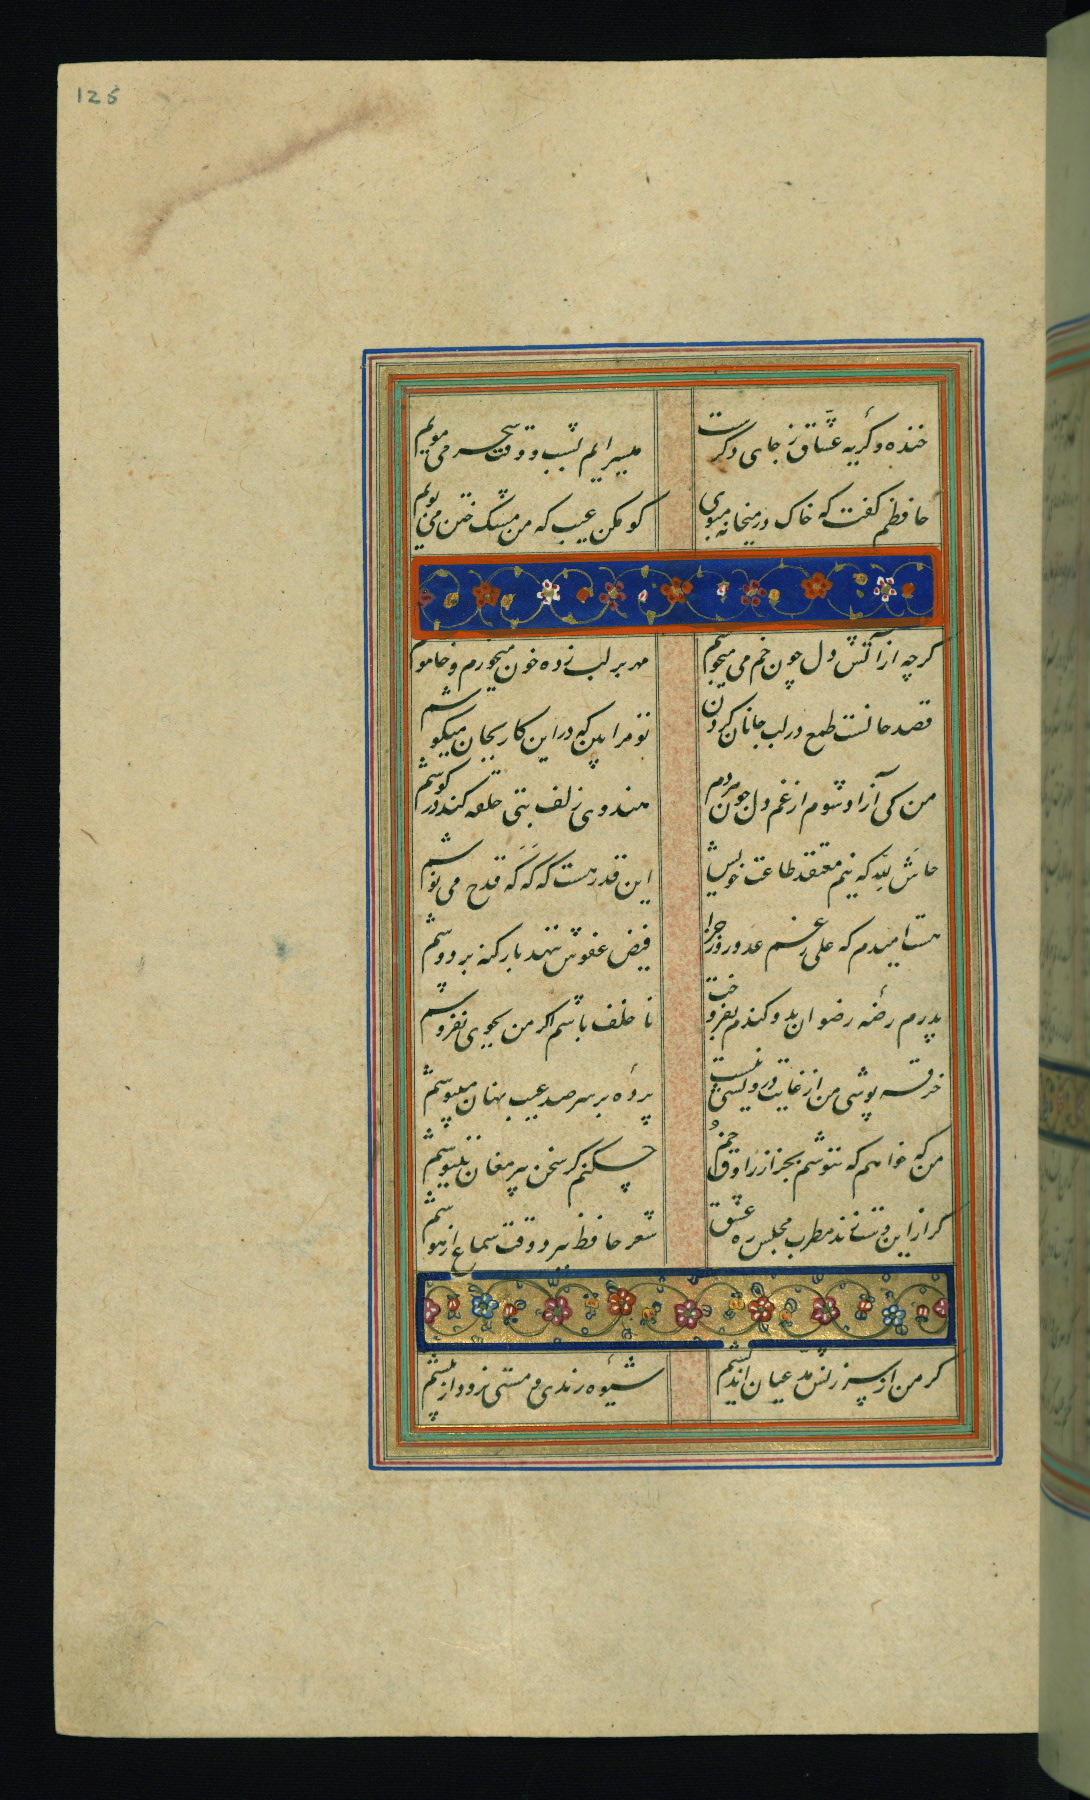 125
خنده و گریهٔ عشاق ز جای دگرست میسرایم بشب و وقت سحر می مویم
حافظم گفت که خاک در میخانه مبوی گو مکن عیب که من مشک ختن می بویم
گرچه از آتش دل چون خم می میجوشم مهر بر لب زده خون میخورم و خاموشم
قصد جانست طمع در لب جانان کردن تو مرا بین که در این کار بجان میکوشم
من کی آزاد شوم از غم دل چون هردم هندوی زلف بتی حلقه کند در گوشم
حاش لله که نیم معتقد طاعت خویش این قدر هست که گه گه قدح می نوشم
هست امیدم که علی رغم عدو روز جزا فیض عفوش ننهد بار گنه بر دوشم
پدرم روضهٔ رضوان بدو گندم بفروخت ناخلف باشم اگر من بجوی نفروشم
خرقه پوشی من از غایت درویشی نیست پردهٔ بر سر صد عیب نهان میپوشم
من که خواهم که ننوشم بجز از راوق خم چکنم گر سخن پیر مغان ننیوشم
گر از این دست زند مطرب مجلس ره عشق شعر حافظ ببرد وقت سماع از هوشم
گر من از سرزنش مدعیان اندیشم شیوهٔ رندی و مستی نرود از پیشم